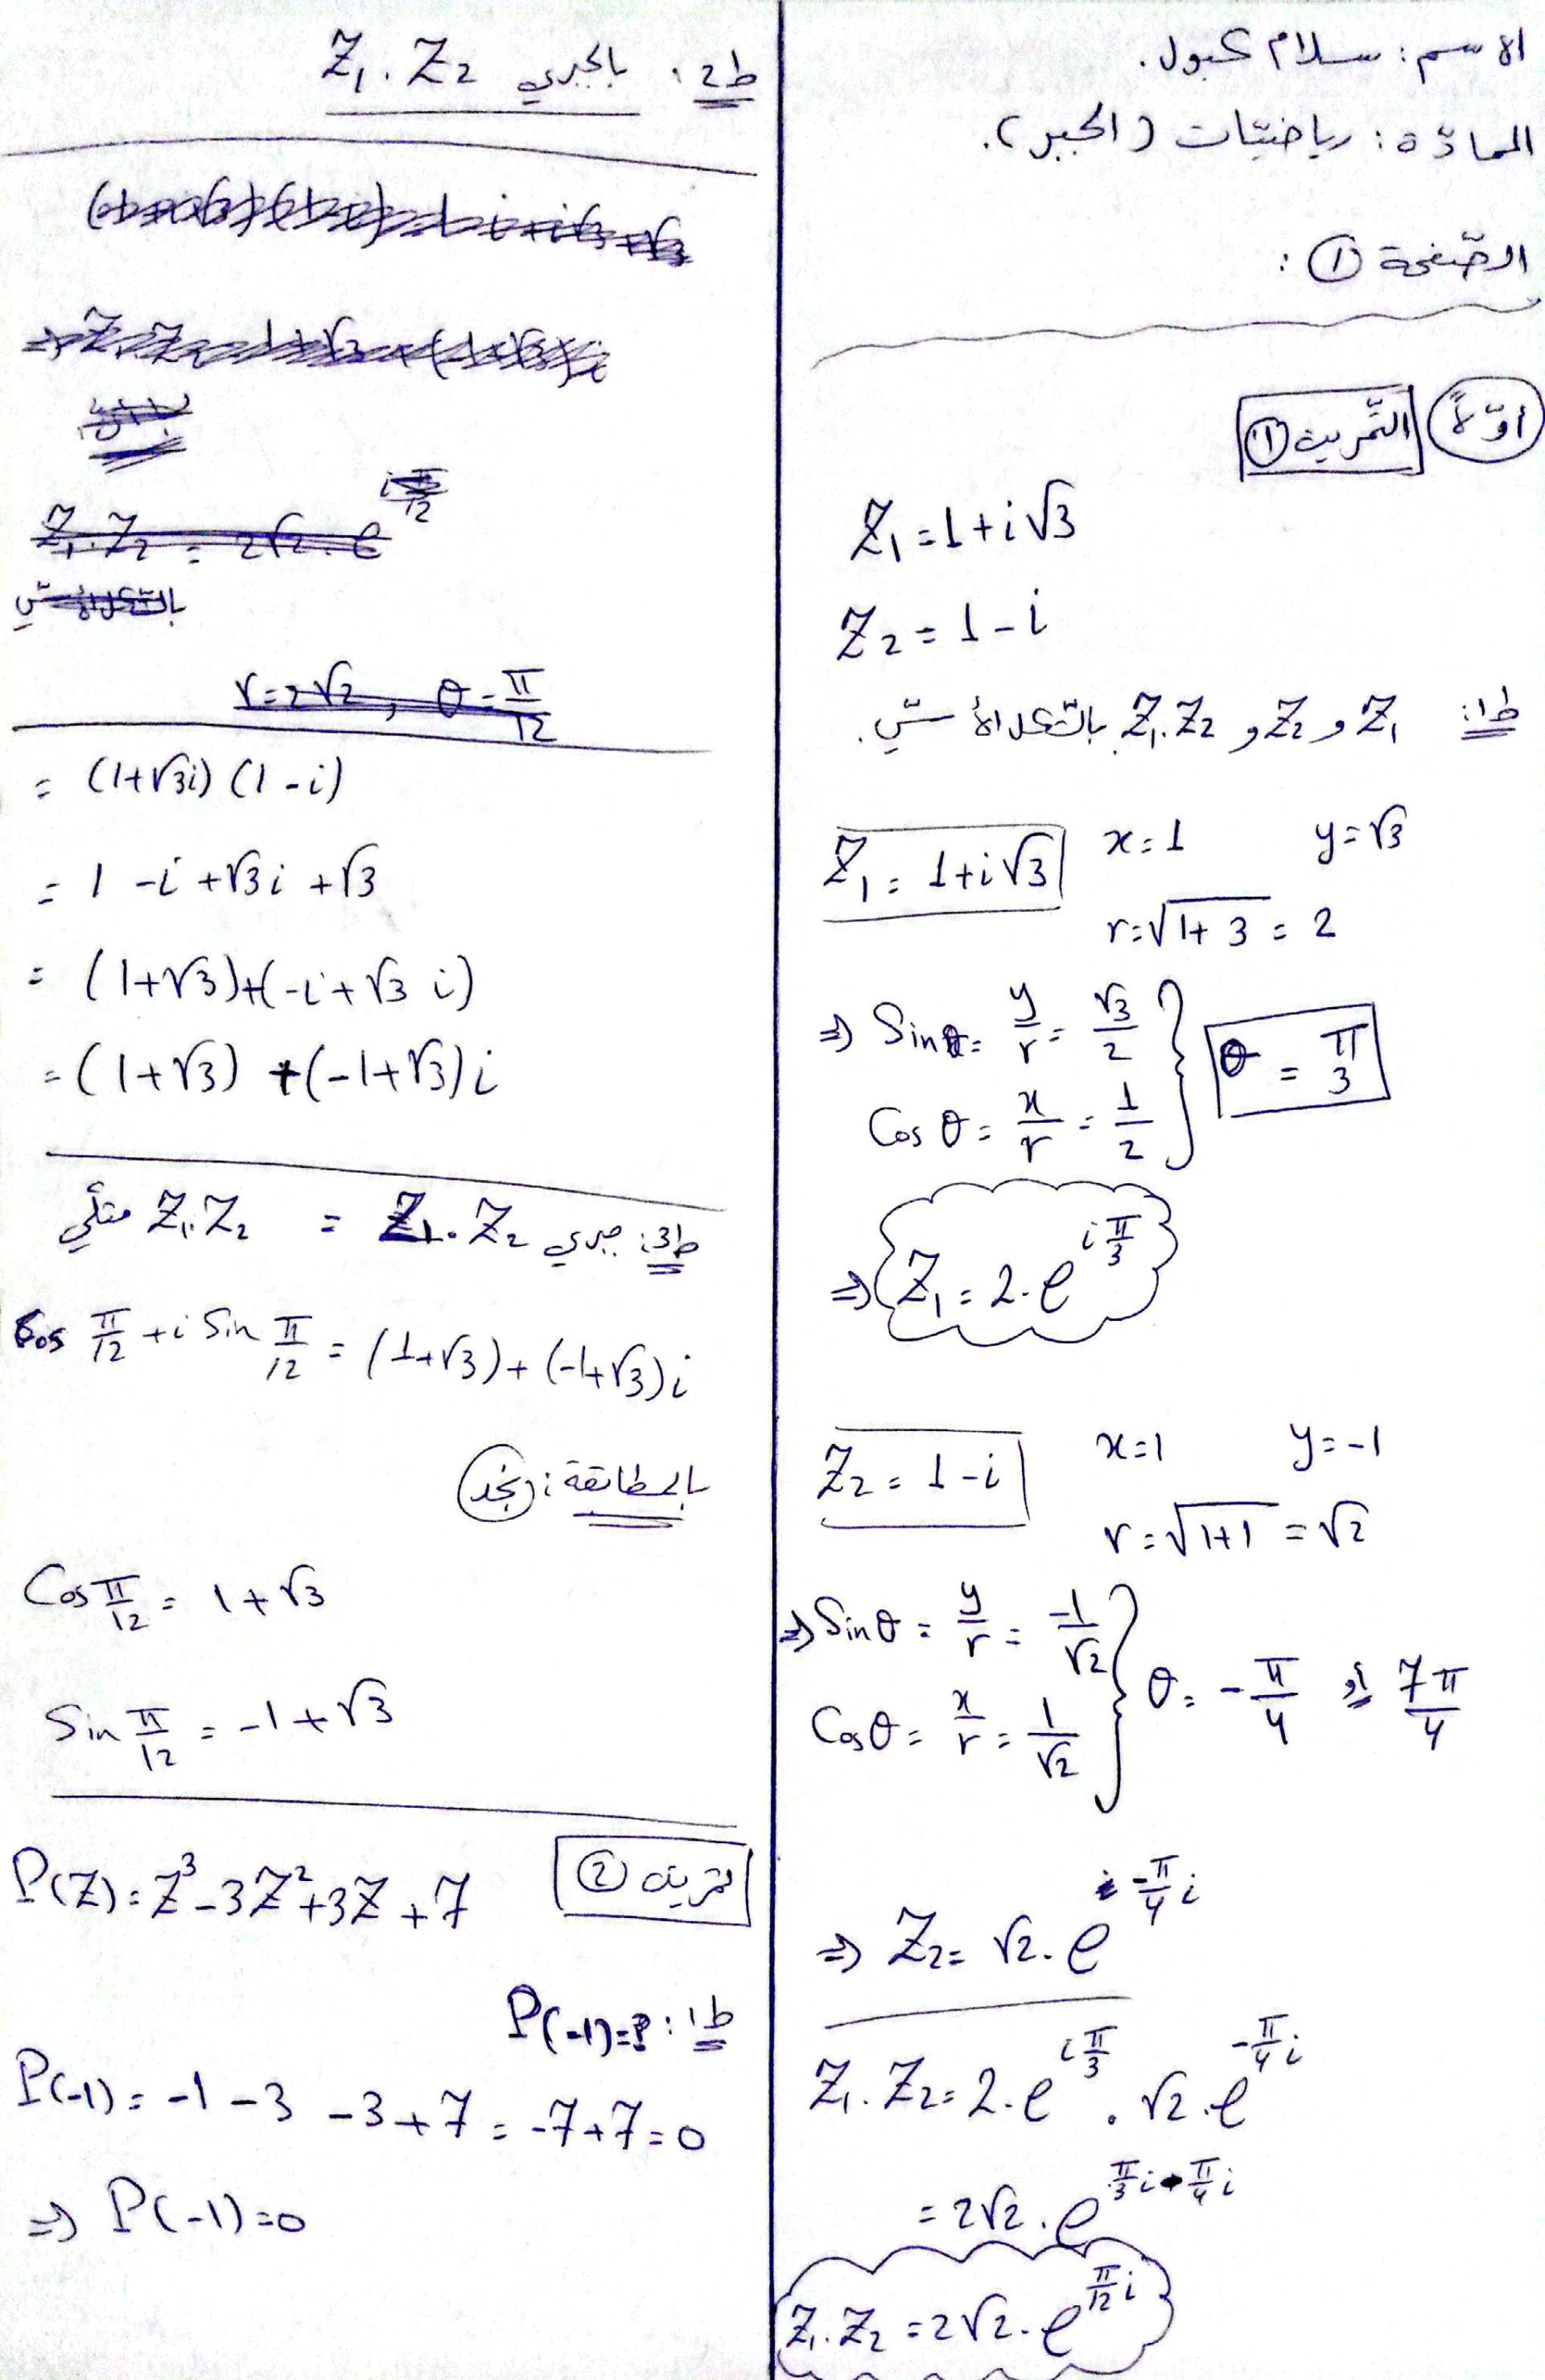 الاسم: سلام كبول.
المادّة: رياضيّات (الجبر).
الصّفحة ①:
أوّلاً التّمرين ①
Z₁ = 1 + i√3
Z₂ = 1 - i
ط1: Z₁ و Z₂ و Z₁.Z₂ بالشكل الأسّي.
Z₁ = 1 + i√3 x = 1 y = √3
r = √(1+3) = 2
⇒ Sin θ = y/r = √3/2
Cos θ = x/r = 1/2 } θ = π/3
⇒ Z₁ = 2 . e^(i π/3)
Z₂ = 1 - i x = 1 y = -1
r = √(1+1) = √2
⇒ Sin θ = y/r = -1/√2
Cos θ = x/r = 1/√2 } θ = -π/4 أو 7π/4
⇒ Z₂ = √2 . e^(-π/4 i)
Z₁ . Z₂ = 2 . e^(i π/3) . √2 . e^(-π/4 i)
= 2√2 . e^(π/3 i - π/4 i)
Z₁ . Z₂ = 2√2 . e^(π/12 i)
ط2: بالجبري Z₁ . Z₂
Z₁ . Z₂ = 2√2 . e
r = 2√2 , θ = π/12
= (1 + √3i) (1 - i)
= 1 - i + √3 i + √3
= (1 + √3) + (-i + √3 i)
= (1 + √3) + (-1 + √3) i
ط3: جبري Z₁ . Z₂ = Z₁ . Z₂ مثلثي
Cos π/12 + i Sin π/12 = (1 + √3) + (-1 + √3) i
بالمطابقة: نجد
Cos π/12 = 1 + √3
Sin π/12 = -1 + √3
تمرين ②
P(Z) = Z³ - 3Z² + 3Z + 7
ط1: P(-1) = ?
P(-1) = -1 - 3 - 3 + 7 = -7 + 7 = 0
⇒ P(-1) = 0